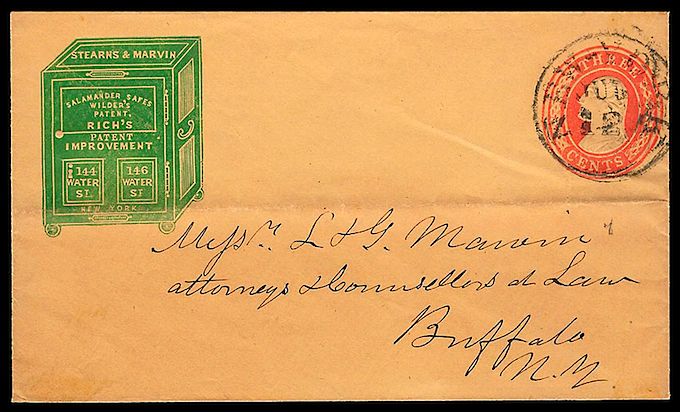 STEARNS & MARVIN
SALAMANDER SAFES
WILDER'S
PATENT,
RICH'S
PATENT
IMPROVEMENT
144 WATER ST.
146 WATER ST.
NEW YORK
THREE
CENTS
NEW-YORK
JUL
12
Messrs. L & G. Marvin
attorneys & Counsellors at Law
Buffalo
N.Y